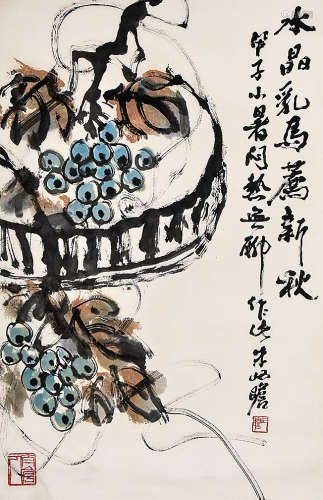 水晶乳馬薦新秋
甲子小暑闷热無聊
作此朱屺瞻